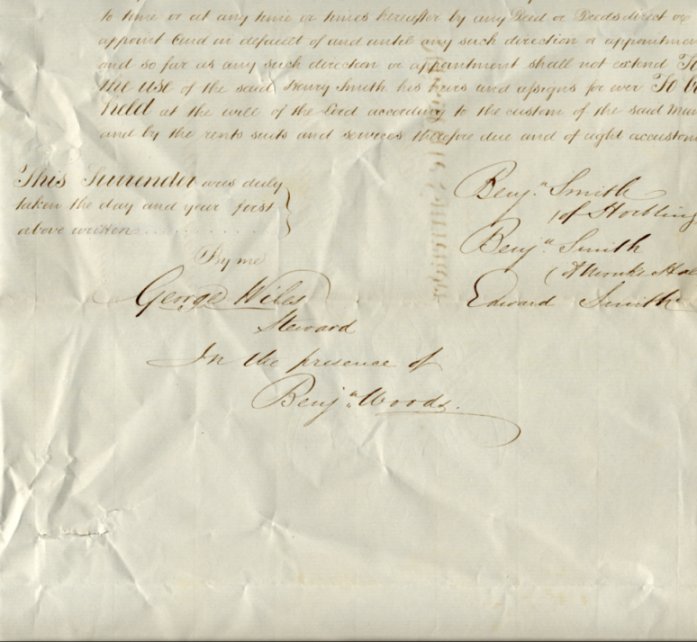 to time or at any time or times hereafter by any Deed or Deeds direct or
appoint And in default of and until any such direction or appointmen
and so far as any such direction or appointment shall not extend To
the use of the said Henry Smith his heirs and assigns for ever To be
held at the will of the Lord according to the custom of the said Man
and by the rents suits and services therefore due and of right accustom
This Surrender was duly
taken the day and year first
above written
By me
George Wiles
Steward
In the presence of
Benjn. Woods.
Benjn. Smith
(of Horbling
Benjn. Smith
(of
Edward Smith